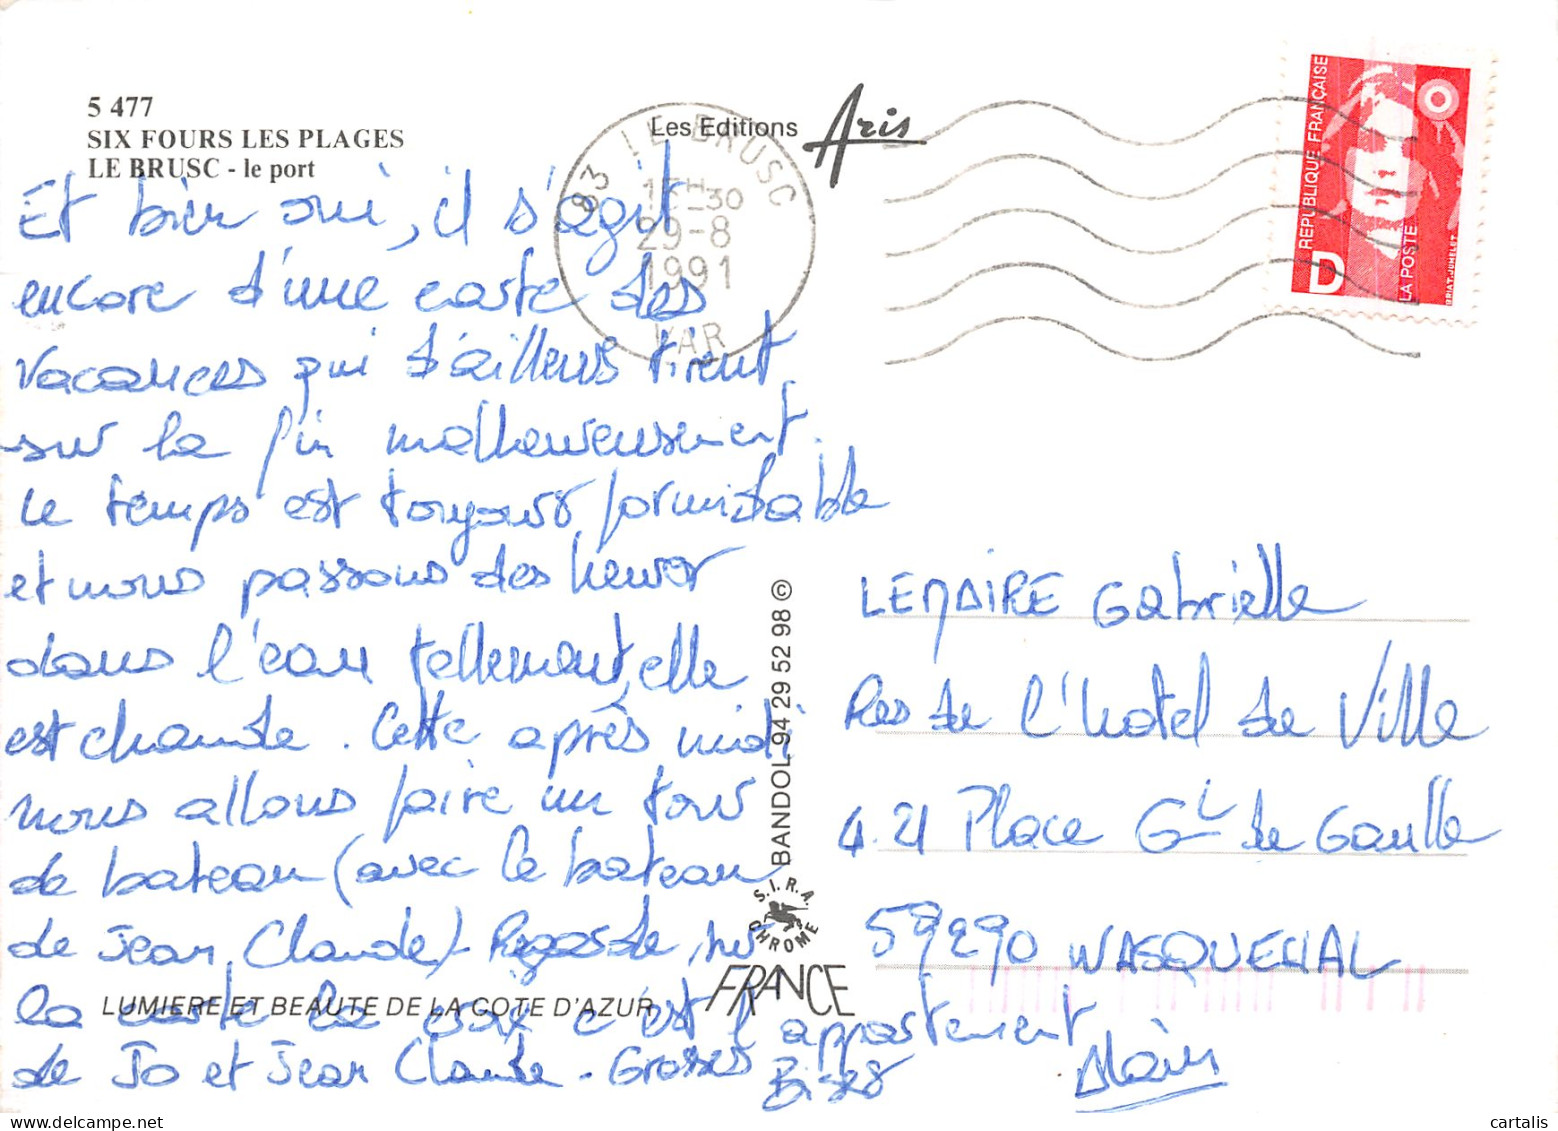 5 477
SIX FOURS LES PLAGES
LE BRUSC - le port
Les Editions Aris
83 LE BRUSC
17H-30
29-8
1991
VAR
REPUBLIQUE FRANÇAISE
D
LA POSTE
BRIAT. JUMELET
Et bien oui, il s'agit
encore d'une carte des
vacances qui d'ailleurs tirent
sur la fin malheureusement.
Le temps est toujours formidable
et nous passons des heures
dans l'eau tellement, elle
est chaude. Cette après midi
nous allons faire un tour
de bateau (avec le bateau
de Jean Claude). Regarde sur
la carte la croix c'est l'appartement
de Jo et Jean Claude. Grosses
Bises
Alain
LEMAIRE Gabrielle
Res de l'hotel de Ville
4.21 Place GL de Gaulle
59290 WASQUEHAL
BANDOL 94 29 52 98 ©
S.I.R.A. CHROME
FRANCE
LUMIERE ET BEAUTE DE LA COTE D'AZUR
cartalis